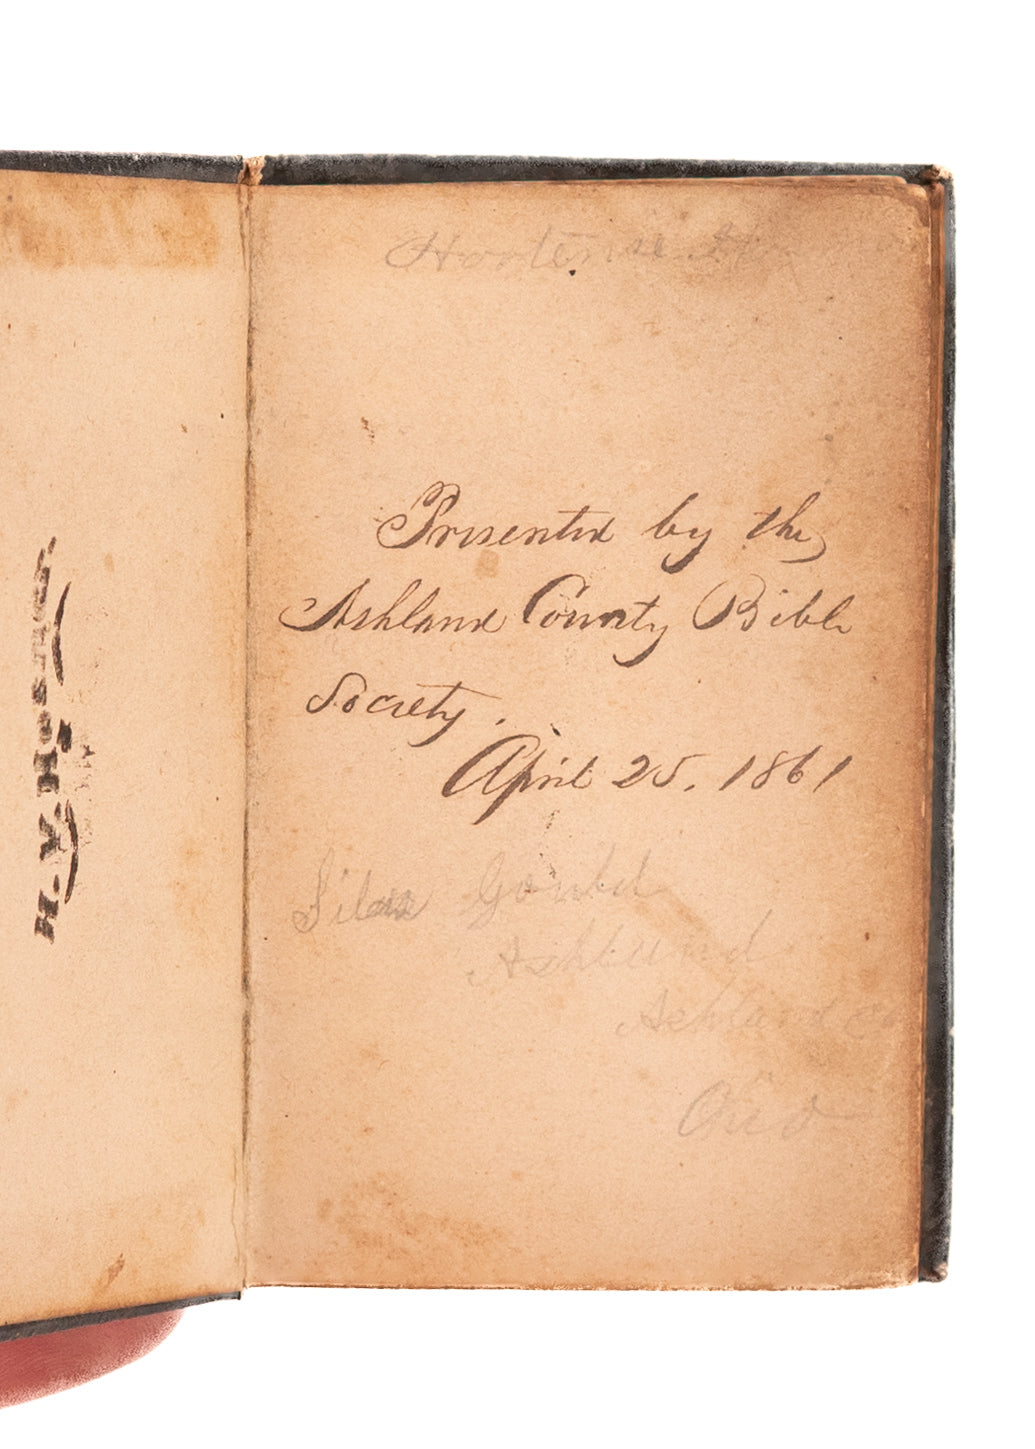 H. V. 
Hortense
Presented by the
Ashland County Bible
Society.
April 25, 1861
Silas Gould
Ashland
Ashland Co
Ohio